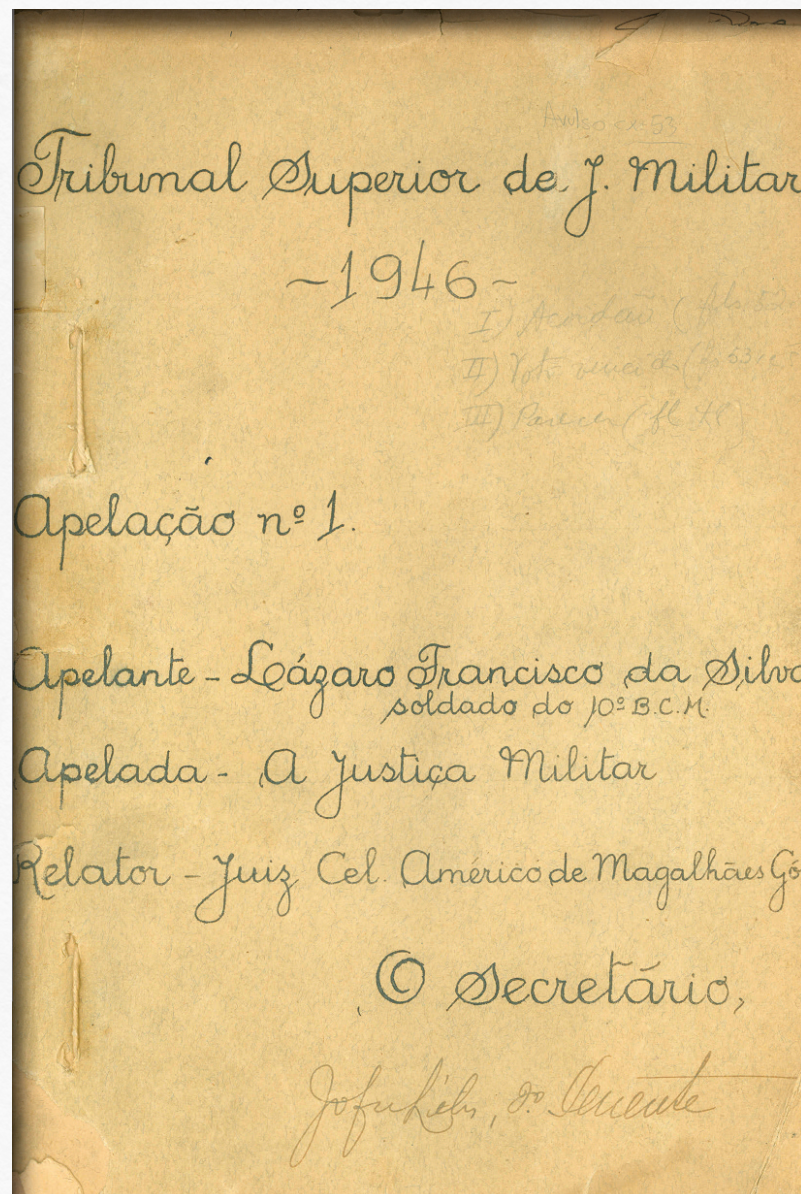 Avulso cx 53
Tribunal Superior de J. Militar
-1946-
I) Acordão (fls
II) Voto vencido (fs 53
III) Parecer (fl.
Apelação nº 1.
Apelante - Lázaro Francisco da Silva
soldado do 10º B.C.M.
Apelada - A Justiça Militar
Relator - Juiz Cel. Américo de Magalhães Gó
O Secretário,
2º Tenente